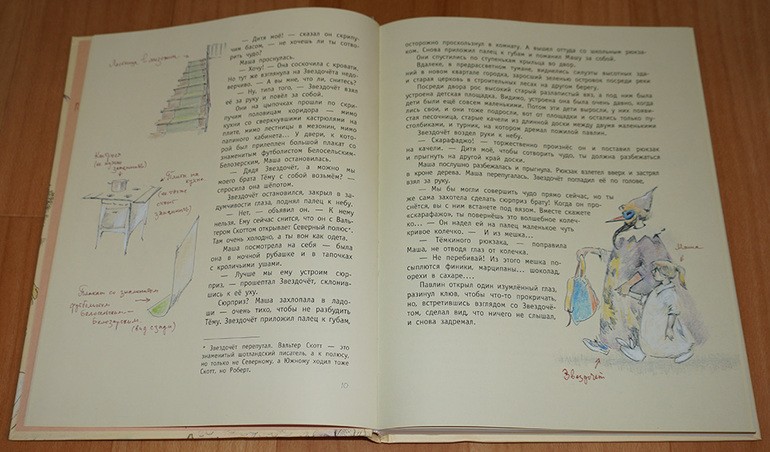 — Дитя моё! — сказал он скрипу-
чим басом, — не хочешь ли ты сотво-
рить чудо?
Маша проснулась.
— Хочу! — Она соскочила с кровати.
Но тут же взглянула на Звездочёта недо-
верчиво. — А вы мне что ли, снитесь?
— Ну, типа того, — Звездочёт взял
её за руку и повёл за собой.
Они на цыпочках прошли по скри-
пучим половицам коридора — мимо
кухни со сверкнувшими кастрюлями на
плите, мимо лестницы в мезонин, мимо
папиного кабинета... У двери, к кото-
рой был прилеплен большой плакат со
знаменитым футболистом Белосельским-
Белозерским, Маша остановилась.
— Дядя Звездочёт, а можно мы
моего брата Тёму с собой возьмём? —
спросила она шёпотом.
Звездочёт остановился, закрыл в за-
думчивости глаза, поднял палец к небу.
— Нет, — объявил он. — К нему
нельзя. Ему сейчас снится, что он с Валь-
тером Скоттом открывает Северный полюс*.
Там очень холодно, а ты вон как одета.
Маша посмотрела на себя — была
она в ночной рубашке и в тапочках
с кроличьими ушами.
— Лучше мы ему устроим сюр-
приз, — прошептал Звездочёт, склонив-
шись к её уху.
Сюрприз? Маша захлопала в ладо-
ши — очень тихо, чтобы не разбудить
Тёму. Звездочёт приложил палец к губам,
* Звездочёт перепутал. Вальтер Скотт — это
знаменитый шотландский писатель, а к полюсу,
но только не Северному, а Южному ходил тоже
Скотт, но Роберт.
10
Лестница в мезонин
Кастрюля
Плита на кухне
Плакат со знаменитым
футболистом
Белосельским-
Белозерским
(вид сзади)
осторожно проскользнул в комнату. А вышел оттуда со школьным рюкза-
ком. Снова приложил палец к губам и поманил Машу за собой.
Они спустились по ступенькам крыльца во двор.
Вдалеке, в предрассветном тумане, виднелись силуэты высотных зда-
ний в новом квартале города, заросший зеленью островок посреди реки
и старая церковь в строительных лесах на другом берегу.
Посреди двора рос высокий старый разлапистый вяз, а под ним была
устроена детская площадка. Видимо, устроена она была очень давно, когда
дети были ещё совсем маленькими. Потом эти дети выросли, у них появи-
лись свои, и они тоже подросли, вот от площадки и остались только пу-
стая песочница, старые качели из длинной доски между двумя маленькими
столбиками, и турник, на котором дремал пожилой павлин.
Звездочёт воздел руки к небу.
— Скарафаджо! — торжественно произнёс он и поставил рюкзак
на качели. — Дитя моё, чтобы сотворить чудо, ты должна разбежаться
и прыгнуть на другой край доски.
Маша послушно разбежалась и прыгнула. Рюкзак взлетел вверх и застрял
в кроне дерева. Маша перепугалась. Звездочёт погладил её по голове,
взял за руку.
— Мы бы могли совершить чудо прямо сейчас, но ты
же сама захотела сделать сюрприз брату! Когда он про-
снётся, вы с ним встанете под вязом. Вместе скажете
«скарафаджо», ты повернёшь это волшебное колеч-
ко... — Он надел ей на палец маленькое чуть
кривое колечко. — И из мешка...
— Тёмкиного рюкзака, — поправила
Маша, не отводя глаз от колечка.
— Не перебивай! Из этого мешка по-
сыплются финики, марципаны... шоколад,
орехи в сахаре....
Павлин открыл один изумлённый глаз,
разинул клюв, чтобы что-то прокричать,
но, встретившись взглядом со Звездочё-
том, сделал вид, что ничего не слышал,
и снова задремал.
Маша
Звездочёт